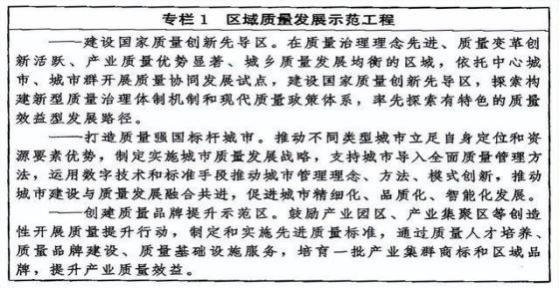 专栏1 区域质量发展示范工程
——建设国家质量创新先导区。在质量治理理念先进、质量变革创
新活跃、产业质量优势显著、城乡质量发展均衡的区域，依托中心城
市、城市群开展质量协同发展试点，建设国家质量创新先导区，探索构
建新型质量治理体制机制和现代质量政策体系，率先探索有特色的质量
效益型发展路径。
——打造质量强国标杆城市。推动不同类型城市立足自身定位和资
源要素优势，制定实施城市质量发展战略，支持城市导入全面质量管理方
法，运用数字技术和标准手段推动城市管理理念、方法、模式创新，推动
城市建设与质量发展融合共进，促进城市精细化、品质化、智能化发展。
——创建质量品牌提升示范区。鼓励产业园区、产业集聚区等创造
性开展质量提升行动，制定和实施先进质量标准，通过质量人才培养、
质量品牌建设、质量基础设施服务，培育一批产业集群商标和区域品
牌，提升产业质量效益。